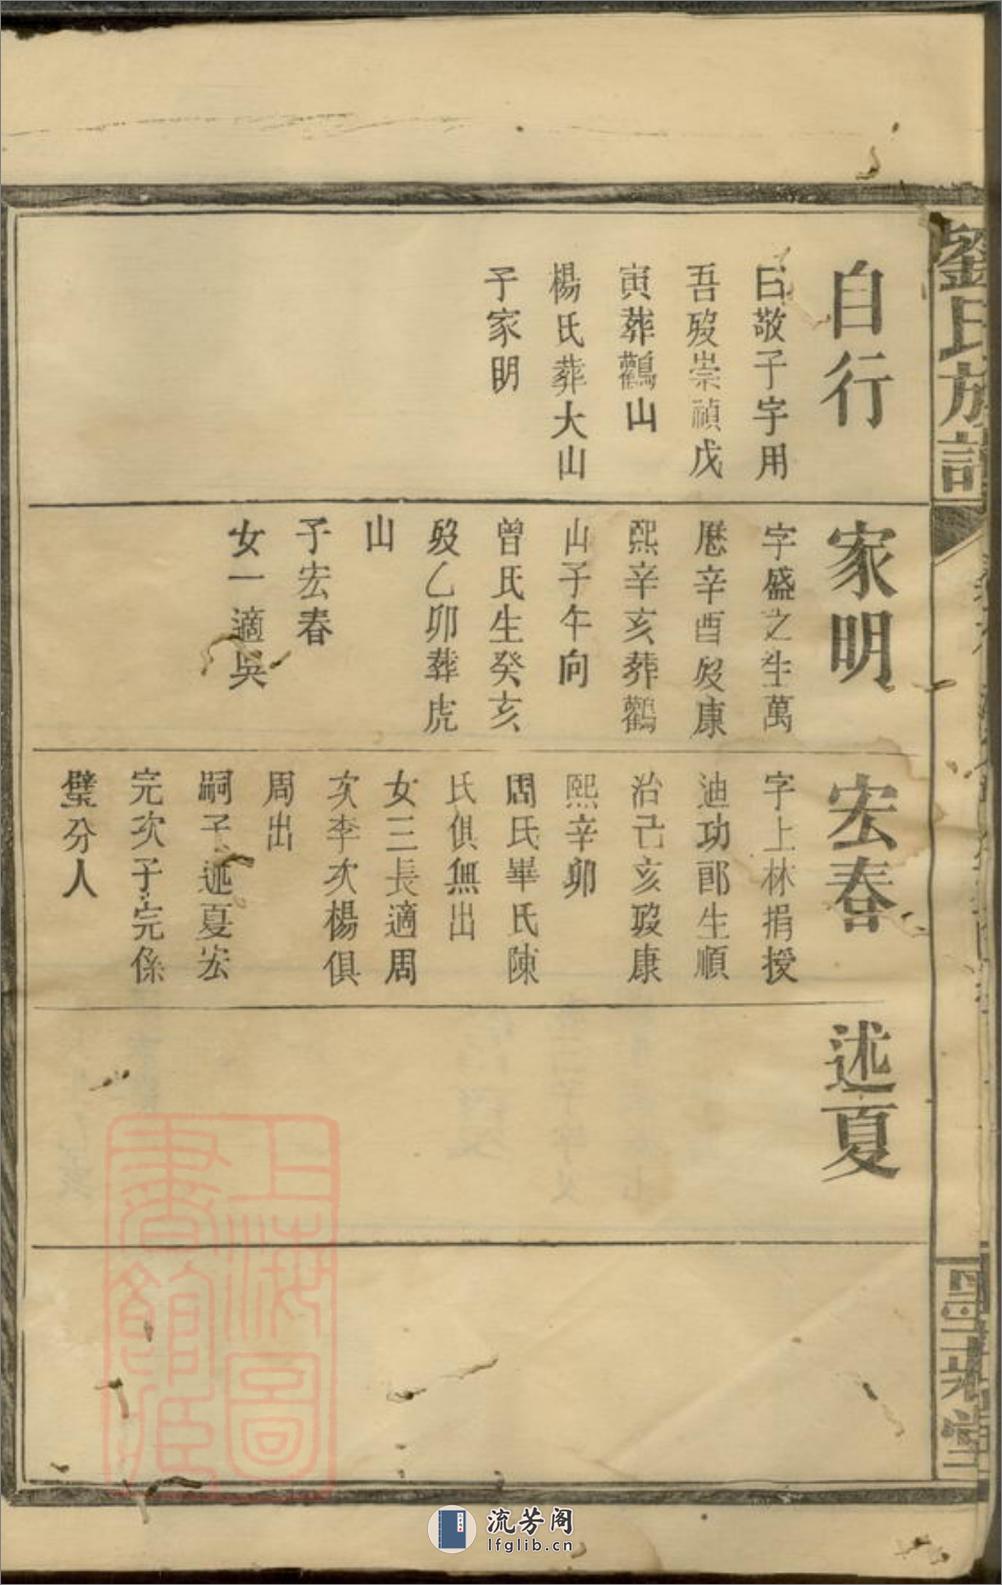 劉氏族譜
自行
曰敬子字用
吾歿崇禎戊
寅葬鸛山
楊氏葬大山
子家明
家明
字盛之生萬
厯辛酉歿康
熙辛亥葬鸛
山子午向
曾氏生癸亥
歿乙卯葬虎
山
子宏春
女一適吳
宏春
字上林捐授
迪功郎生順
治己亥歿康
熙辛卯
周氏畢氏陳
氏俱無出
女三長適周
次李次楊俱
周出
嗣子述夏宏
完次子完係
璧分人
述夏
上海圖書館藏
流芳阁
lfglib.cn